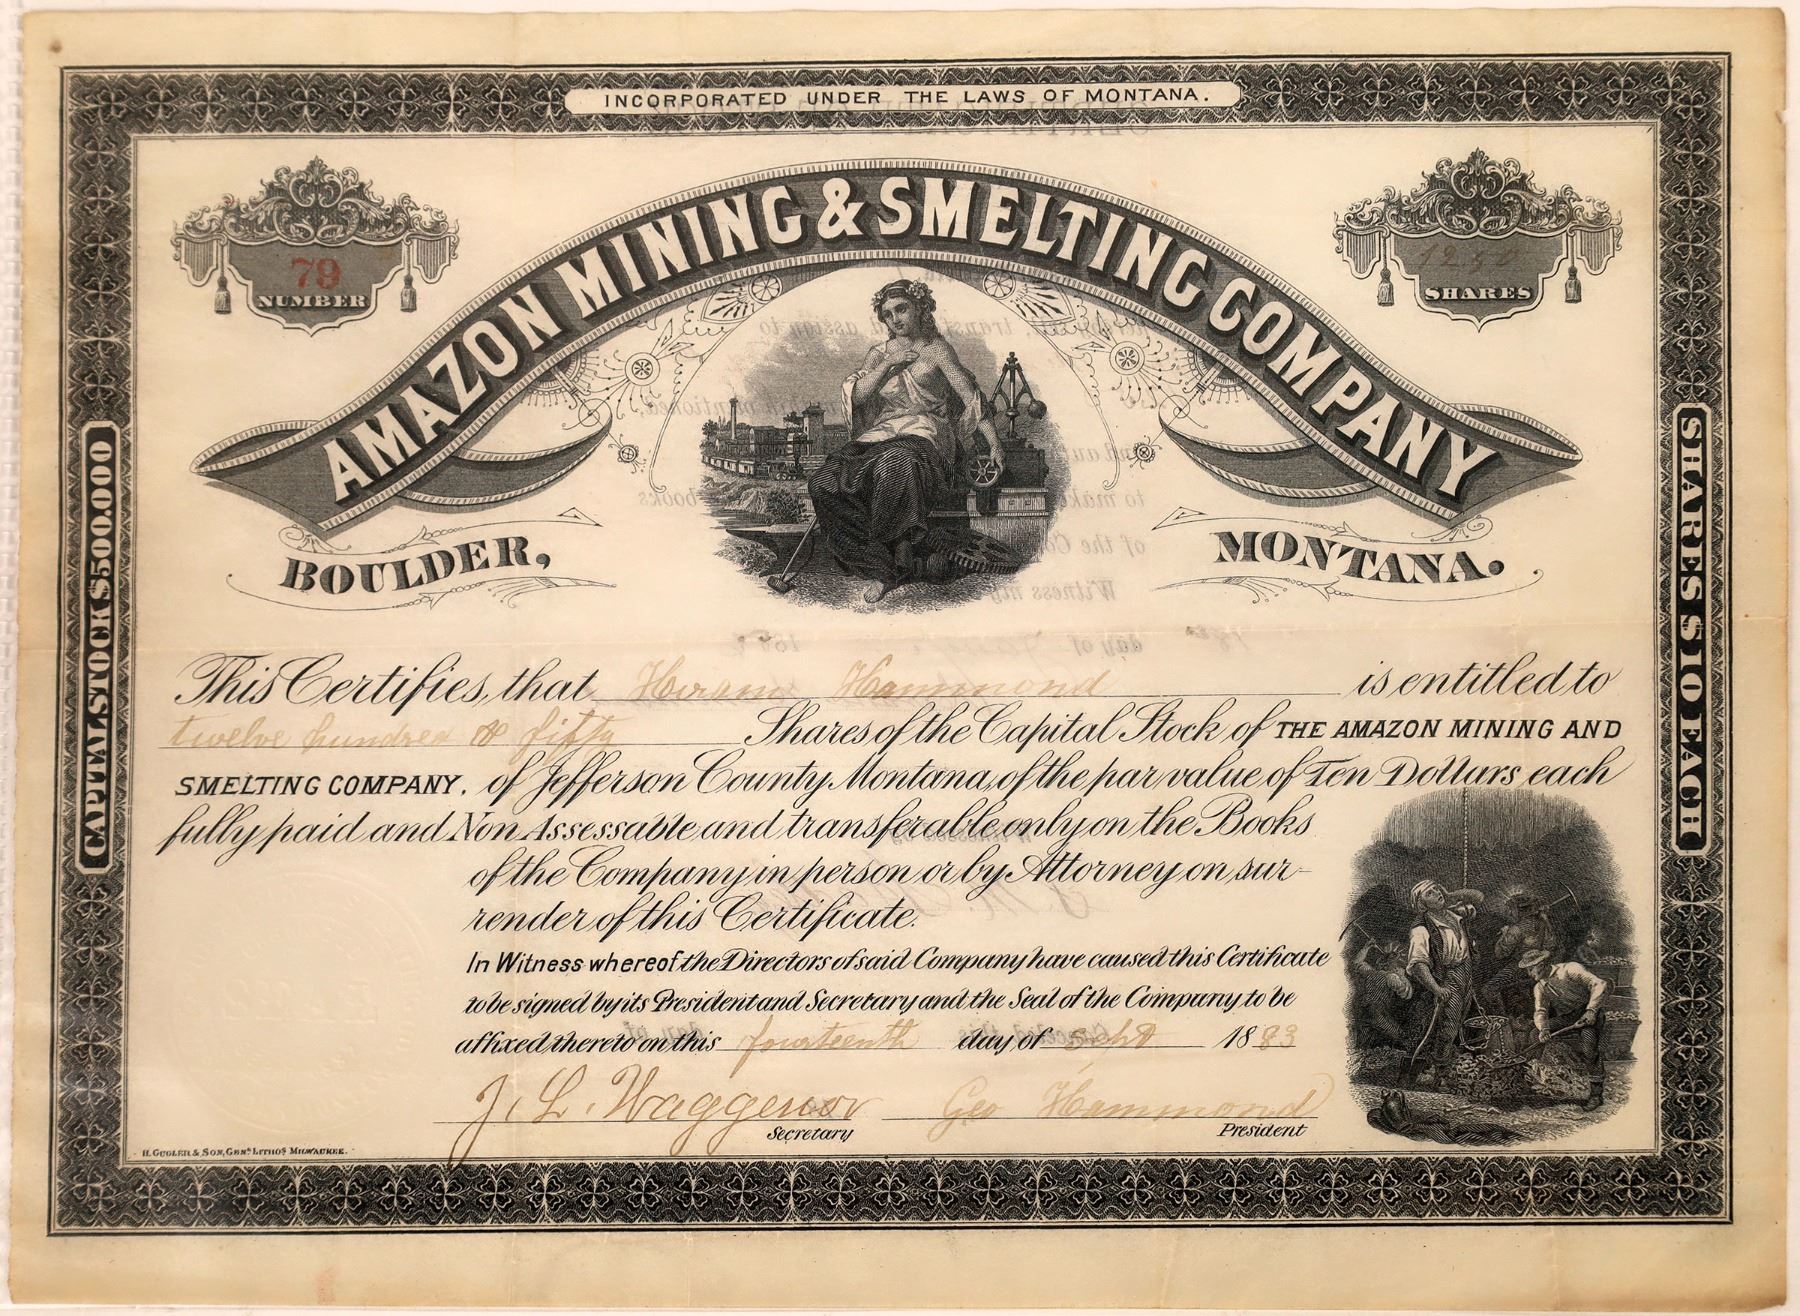 INCORPORATED UNDER THE LAWS OF MONTANA.
79
NUMBER
1250
SHARES
AMAZON MINING & SMELTING COMPANY
BOULDER,
MONTANA.
CAPITAL STOCK $500.000
SHARES $10 EACH
This Certifies, that Hiram Hammond is entitled to
twelve hundred & fifty Shares of the Capital Stock of THE AMAZON MINING AND
SMELTING COMPANY. of Jefferson County, Montana, of the par value of Ten Dollars each
fully paid and Non Assessable and transferable only on the Books
of the Company in person or by Attorney on sur-
render of this Certificate.
In Witness whereof the Directors of said Company have caused this Certificate
to be signed by its President and Secretary and the Seal of the Company to be
affixed thereto on this fourteenth day of Sept 1883
J. L. Waggenor Geo Hammond
Secretary
President
H. GUGLER & SON, GENL LITHOS MILWAUKEE.